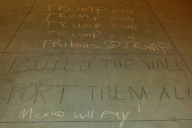 TRUMP 2016
TRUMP 2016
TRUMP 2016
TRUMP
Tritons TRUMP
BUILD THE WALL
PORT THEM ALL
Mexico will Pay!